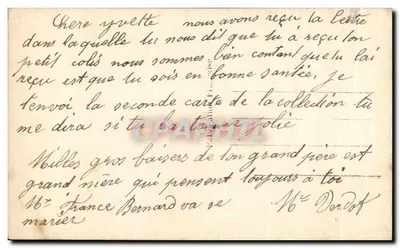 Chere yvette nous avons reçu la lettre
dans laquelle tu nous dit que tu à reçu ton
petit colis nous sommes bien contant que tu lai
reçu est que tu sois en bonne santée, je
tenvoi la seconde carte de la collection tu
me dira si tu la trouve jolie
Milles gros baisers de ton grand père est
grand mère qui pensent toujours à toi
France Bernard va se
marier